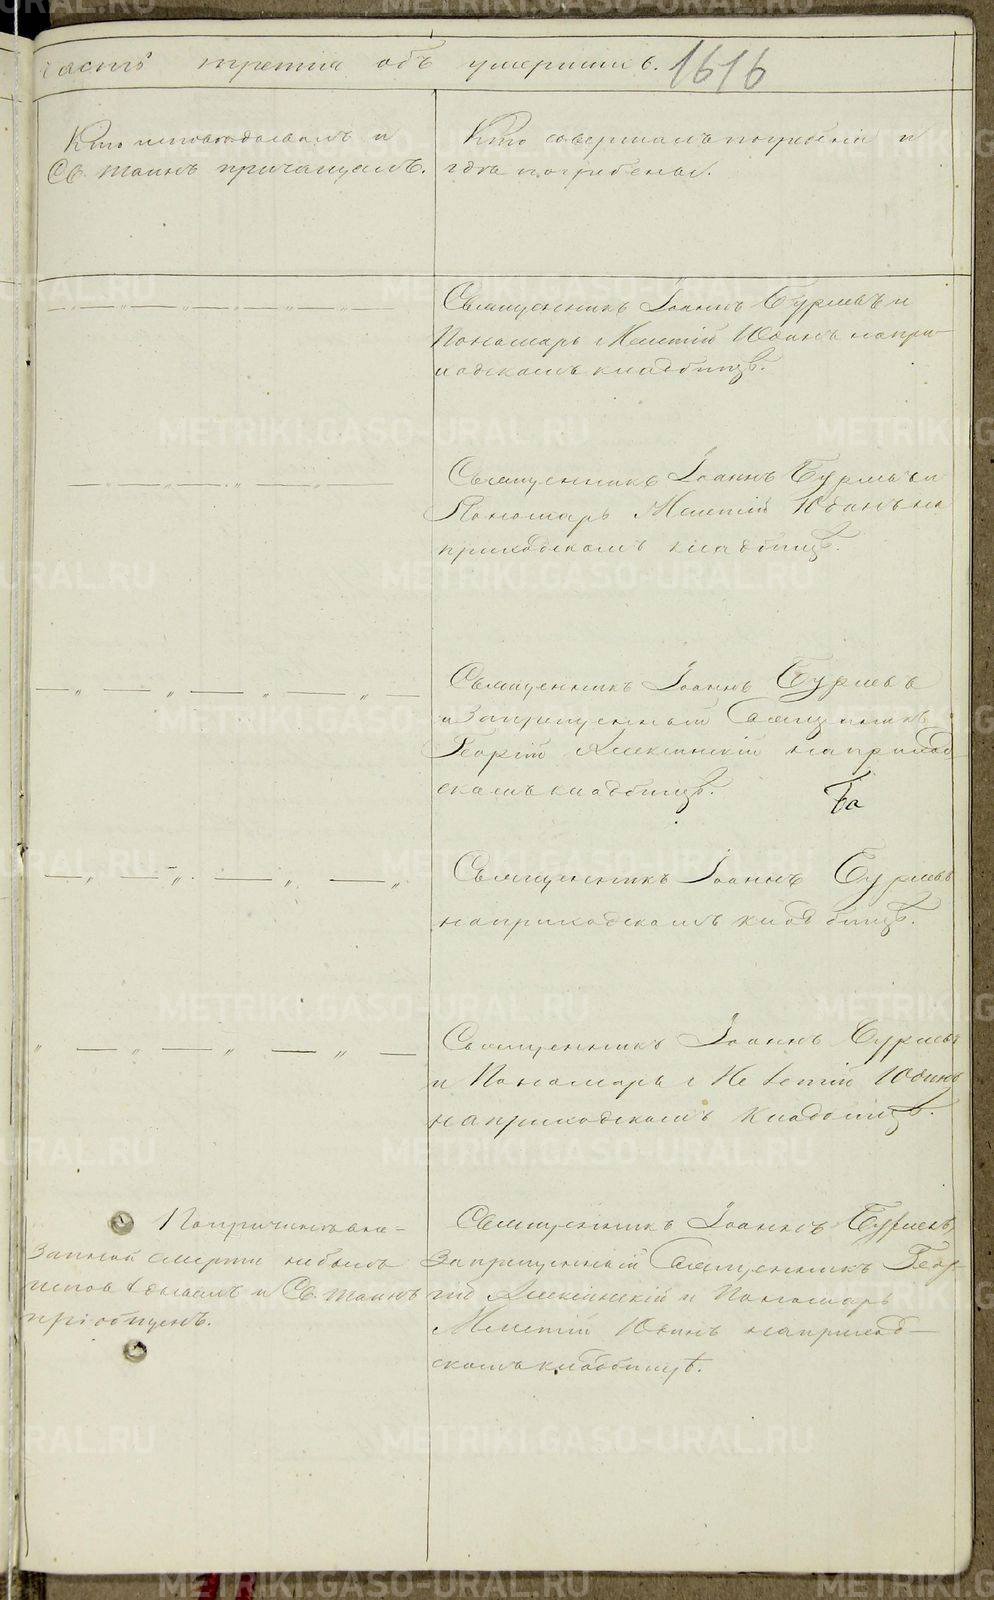 часть третія объ умершихъ. 1616
Кто исповѣдывалъ и
Св. таинъ причащалъ.
Кто совершалъ погребеніе и
гдѣ погребены.
Священникъ Іоаннъ Бурмевъ и
Пономарь Мелетій Юдинъ на при-
ходскомъ кладбищѣ.
Священникъ Іоаннъ и
Пономарь Мелетій Юдинъ на
приходскомъ кладбищѣ.
Священникъ Іоаннъ
и Запрещенный Священникъ
Георгій на приход
скомъ кладбищѣ.
Священникъ Іоаннъ
на приходскомъ кладбищѣ.
Священникъ Іоаннъ
и Пономарь Мелетій Юдинъ
на приходскомъ кладбищѣ.
По причинѣ вне-
запной смерти небылъ
исповѣдыванъ и Св. таинъ
пріобщенъ.
Священникъ Іоаннъ
Запрещенный Священникъ Геор
гій и Пономарь
Мелетій Юдинъ на приход-
скомъ кладбищѣ.
METRIKI.GASO-URAL.RU